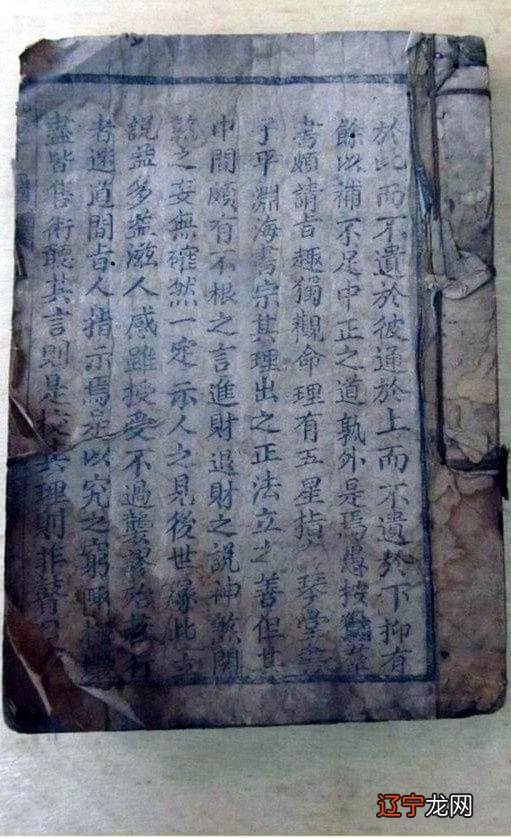 於此而不遺於彼通於上而不遺於下抑有
餘以補不足中正之道孰外是焉愚按
書頗請旨趣獨觀命理有五星指 琴堂
子平淵海書宗其理出之正法立之善但其
中間頗有不根之言進財退財之說神煞關
之妄無確然一定示人之見後世緣此
說益多益滋人感雖授受不過襲謬
者迷道間旨人指示焉是以究之窮
盡皆售術聽其言則是校其理則非
辽宁龙网